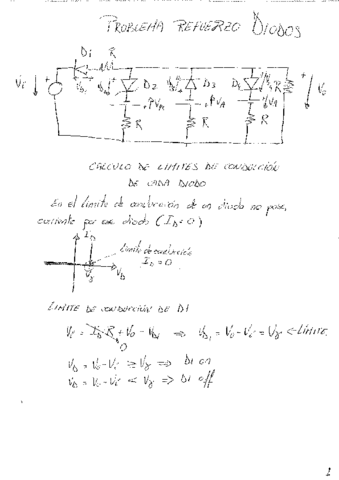 PROBLEMA REFUERZO DIODOS
Di R
Vi D2 D3 Vo
R R R
CÁLCULO DE LÍMITES DE CONDUCCIÓN
DE CADA DIODO
En el límite de conducción de un diodo no pasa
corriente por ese diodo (ID=0)
ID
Límite de conducción
ID=0
Vγ VD
LÍMITE DE CONDUCCIÓN DE D1
Vi = ID·R + Vo - VD1 ⇒ VD1 = Vo - Vi = Vγ ← LÍMITE
0
VD = Vo - Vi ≥ Vγ ⇒ D1 on
VD = Vo - Vi < Vγ ⇒ D1 off
1